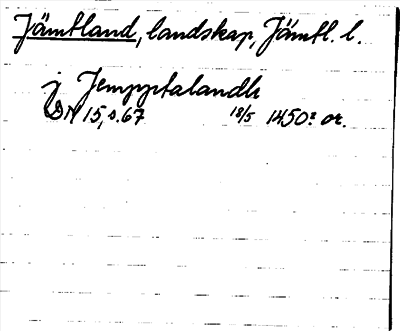 Jämtland, landskap, Jämtl. l.
j Jempptalandh
DN 15, s. 67 18/5 1450? or.